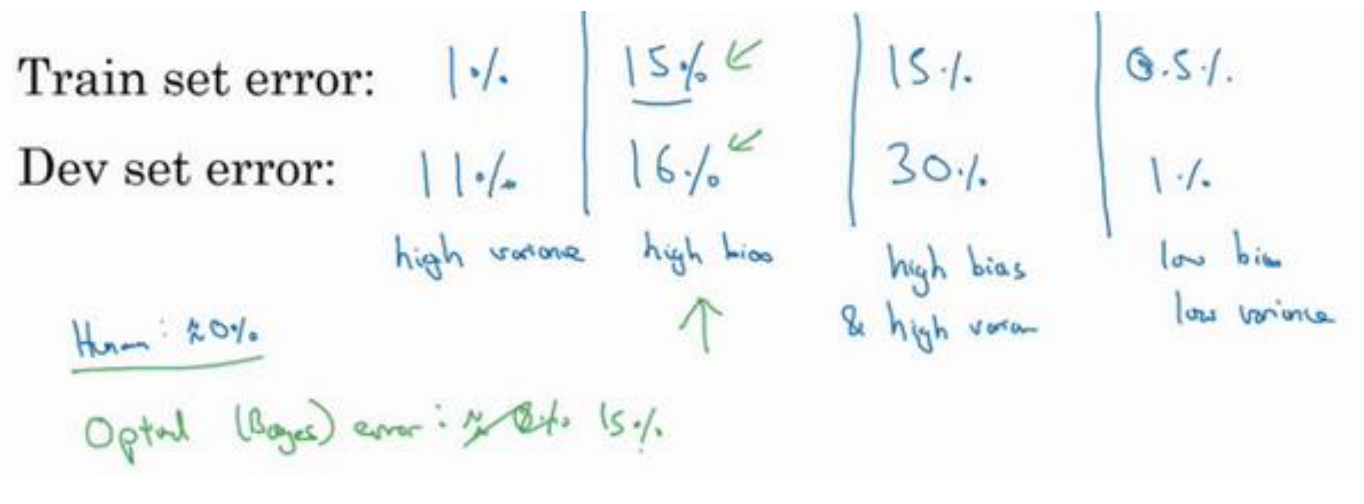 Train set error: 1% 15% 15% 0.5%
Dev set error: 11% 16% 30% 1%
high variance high bias high bias low bias
& high varian low variance
Human: ≈0%
Optimal (Bayes) error: ≈ 0% 15%